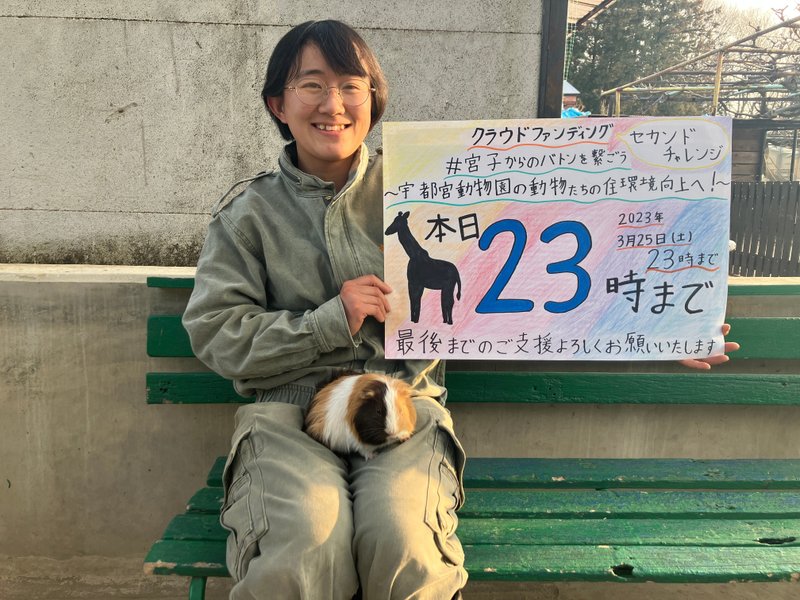 クラウドファンディング
セカンド
チャレンジ
#宮子からのバトンを繋ごう
～宇都宮動物園の動物たちの住環境向上へ！～
本日
23
時まで
2023年
3月25日(土)
23時まで
最後までのご支援よろしくお願いいたします